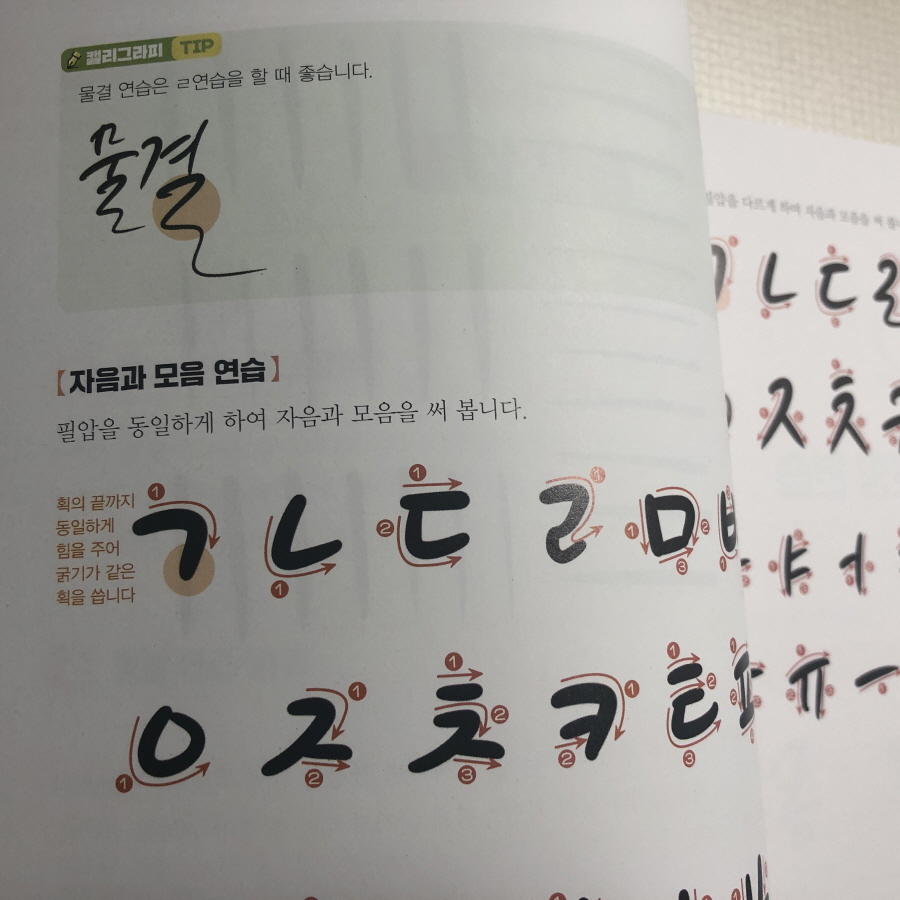 캘리그라피 TIP
물결 연습은 ㄹ연습을 할 때 좋습니다.
물결
【자음과 모음 연습】
필압을 동일하게 하여 자음과 모음을 써 봅니다.
획의 끝까지
동일하게
힘을 주어
굵기가 같은
획을 씁니다
ㄱ ㄴ ㄷ ㄹ ㅁ ㅂ
ㅇ ㅈ ㅊ ㅋ ㅌ ㅍ
필압을 다르게 하여 자음과 모음을 써
ㄱ ㄴ ㄷ ㄹ
ㅈ ㅊ
ㅑ ㅓ
ㅠ ㅡ